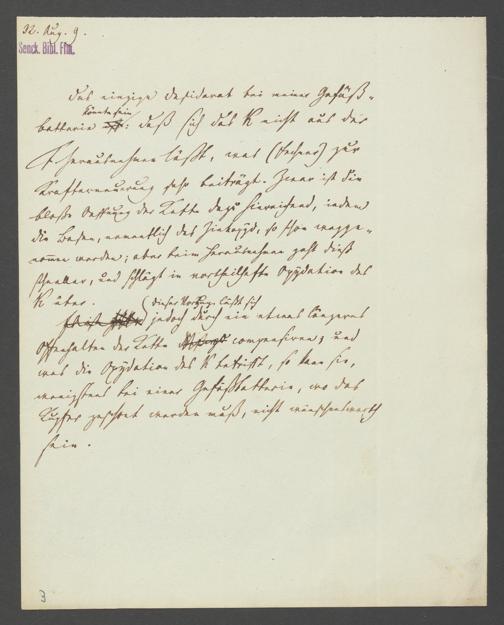 32. Aug. 9.
Senck. Bibl. Ffm.
Das einzige Desiderat bei einer Gefäß-
könnte sein
batterie : daß sich das K nicht aus der
F herausnehmen läßt, was (Fechner) zur
Krafterneuerung sehr beiträgt. Zwar ist die
bloße Oeffnung der Kette dazu hinreichend, indem
die Basen, namentlich das Zinkoxyd, so schon wegge-
nommen werden; aber beim Herausnehmen geht dieß
schneller, und schlägt in vortheilhafte Oxydation des
K über.
(dieser Vorzug läßt sich
jedoch durch ein etwas längeres
Offenhalten der Kette compensiren; und
was die Oxydation des K betrifft, so kann sie,
wenigstens bei einer Gefäßbatterie, wo das
Kupfer geschont werden muß, nicht wünschenswerth
sein.
3